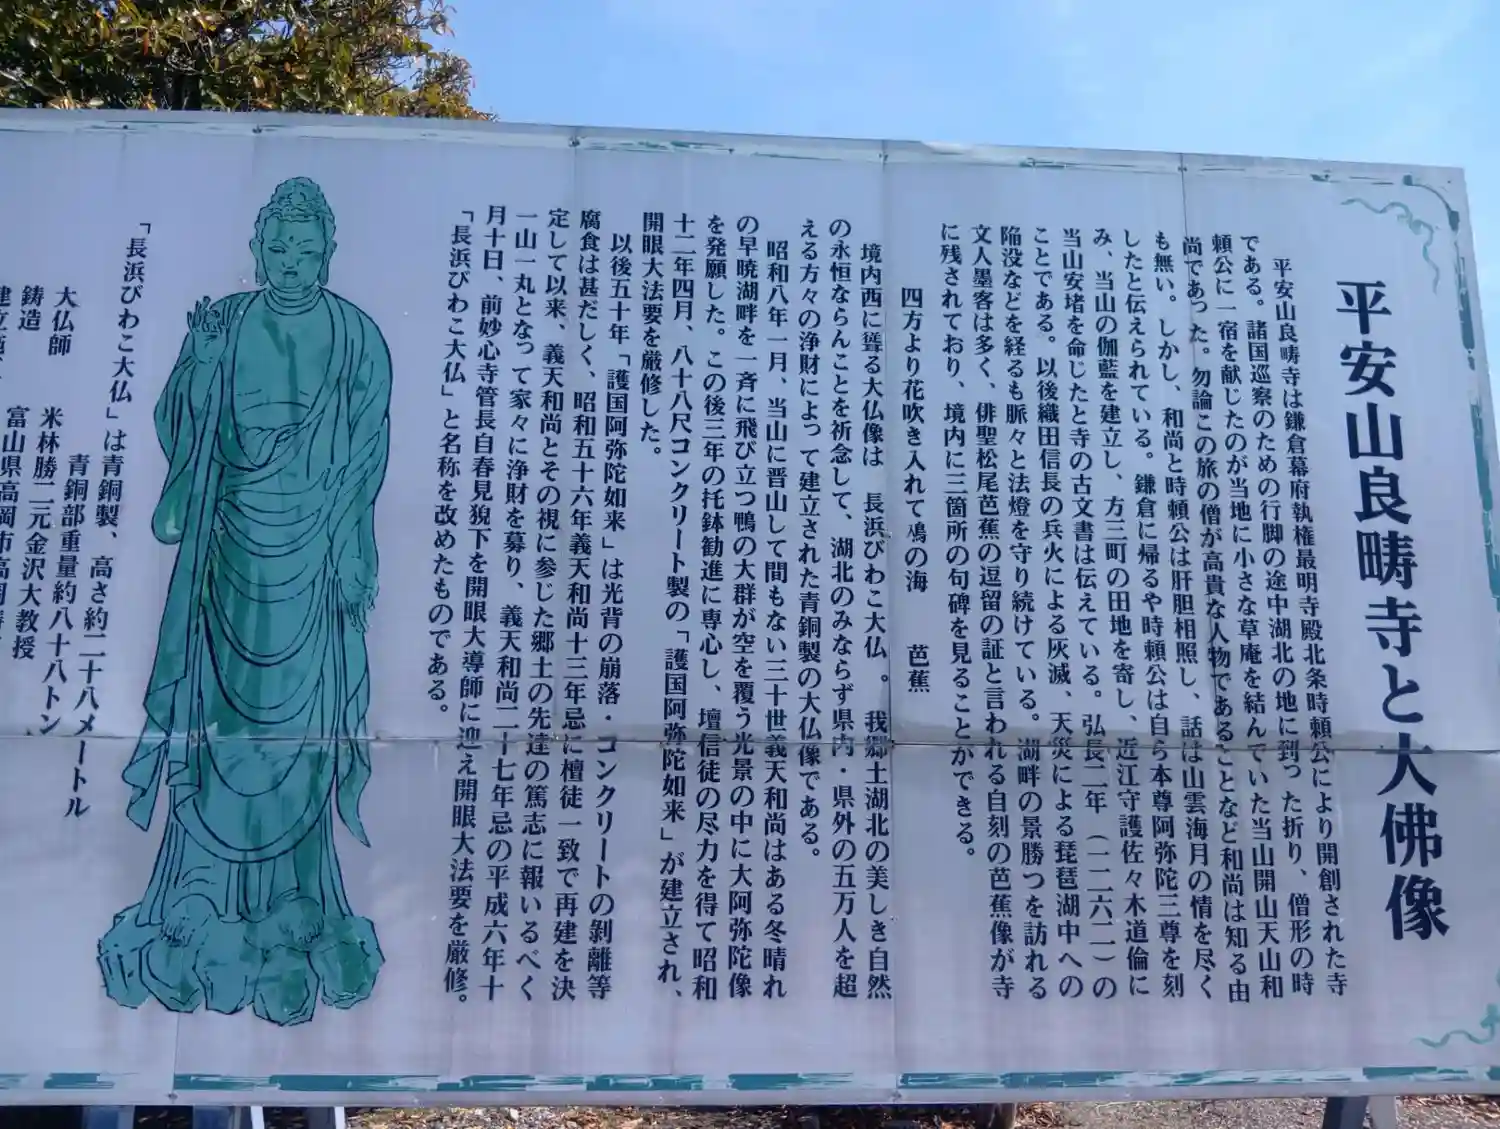 平安山良疇寺と大佛像
平安山良疇寺は鎌倉幕府執権最明寺殿北条時頼公により開創された寺
である。諸国巡察のための行脚の途中湖北の地に到った折り、僧形の時
頼公に一宿を献じたのが当地に小さな草庵を結んでいた当山開山天山和
尚であった。勿論この旅の僧が高貴な人物であることなど和尚は知る由
も無い。しかし、和尚と時頼公は肝胆相照し、話は山雲海月の情を尽く
したと伝えられている。鎌倉に帰るや時頼公は自ら本尊阿弥陀三尊を刻
み、当山の伽藍を建立し、方三町の田地を寄し、近江守護佐々木道倫に
当山安堵を命じたと寺の古文書は伝えている。弘長二年（一二六二）の
ことである。以後織田信長の兵火による灰滅、天災による琵琶湖中への
陥没などを経るも脈々と法燈を守り続けている。湖畔の景勝つを訪れる
文人墨客は多く、俳聖松尾芭蕉の逗留の証と言われる自刻の芭蕉像が寺
に残されており、境内に三箇所の句碑を見ることができる。
四方より花吹き入れて鳰の海　芭蕉
境内西に聳る大仏像は　長浜びわこ大仏　。我郷土湖北の美しき自然
の永恒ならんことを祈念して、湖北のみならず県内・県外の五万人を超
える方々の浄財によって建立された青銅製の大仏像である。
昭和八年一月、当山に晋山して間もない三十世義天和尚はある冬晴れ
の早暁湖畔を一斉に飛び立つ鴨の大群が空を覆う光景の中に大阿弥陀像
を発願した。この後三年の托鉢勧進に専心し、壇信徒の尽力を得て昭和
十二年四月、八十八尺コンクリート製の「護国阿弥陀如来」が建立され、
開眼大法要を厳修した。
以後五十年「護国阿弥陀如来」は光背の崩落・コンクリートの剝離等
腐食は甚だしく、昭和五十六年義天和尚十三年忌に檀徒一致で再建を決
定して以来、義天和尚とその視に参じた郷土の先達の篤志に報いるべく
一山一丸となって家々に浄財を募り、義天和尚二十七年忌の平成六年十
月十日、前妙心寺管長自春見猊下を開眼大導師に迎え開眼大法要を厳修。
「長浜びわこ大仏」と名称を改めたものである。
「長浜びわこ大仏」は青銅製、高さ約二十八メートル
青銅部重量約八十八トン
大仏師　米林勝二元金沢大教授
鋳造　富山県高岡市